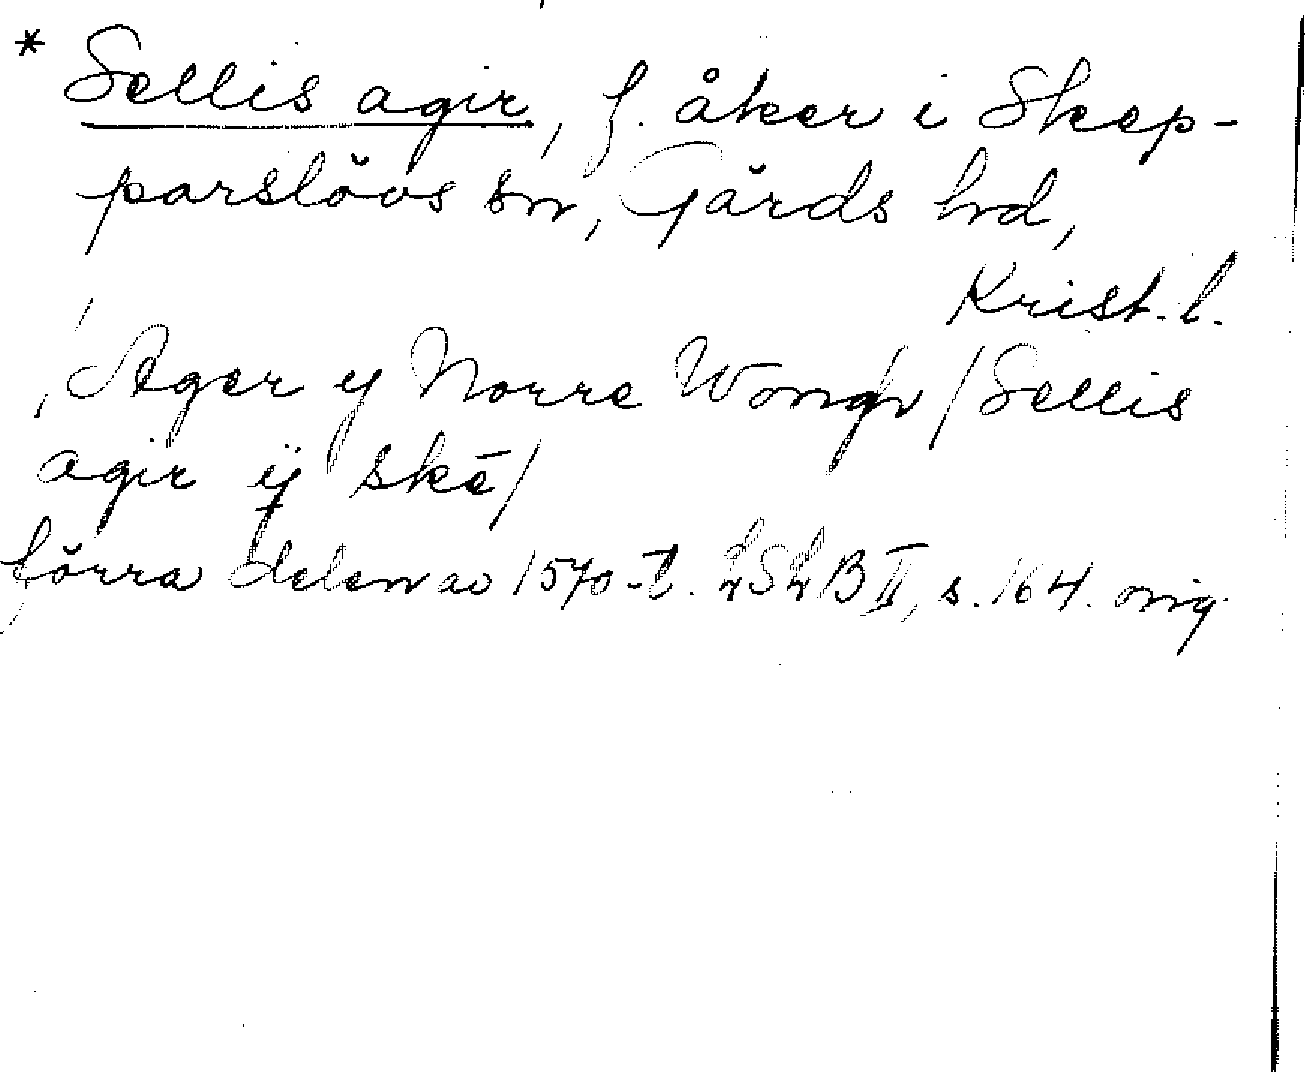 * Sellis agir, f. åker i Skep-
parslövs sn, Gärds hd,
Krist. l.
, Ager y Norre Wongh / Sellis
agir ÿ skē/
förra delen av 1570-t. LSLB II, s. 164. orig.